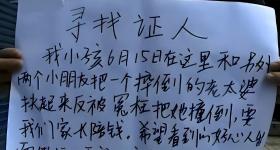 寻找证人
我小孩6月15日在这里和另外
两个小朋友把一个摔倒的老太婆
扶起来反被冤枉把她撞倒,要
我们家长赔钱。希望看到的好心人出